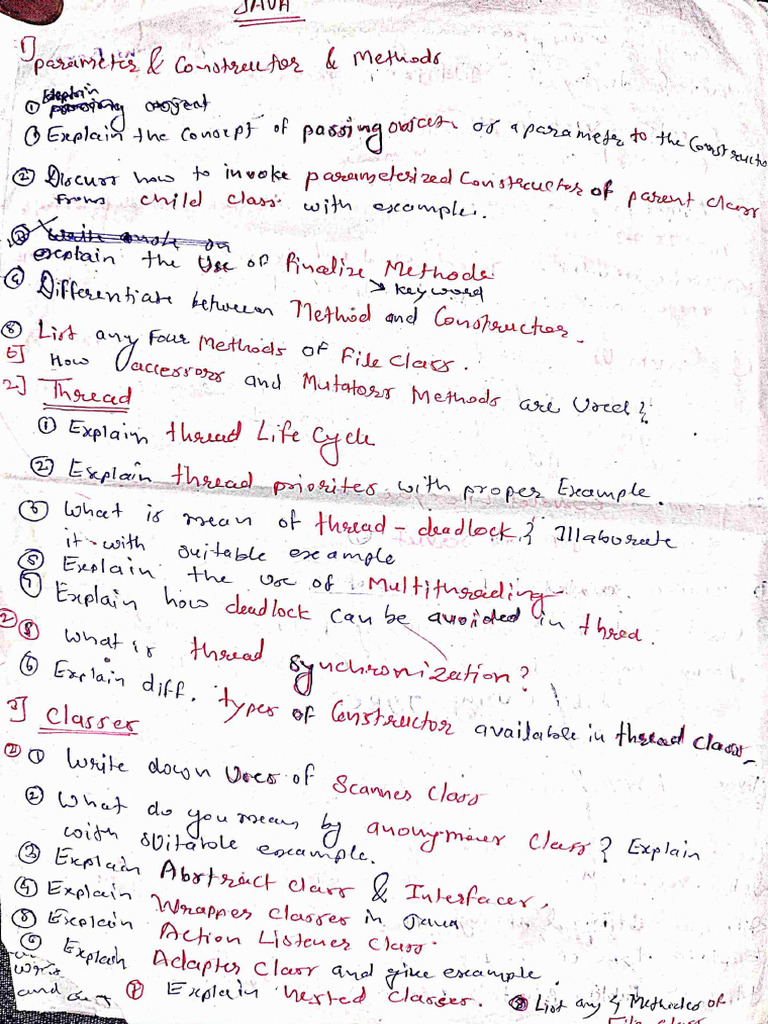 JAVA
1] parameter & Constructor & Methods
Explain
① object
① Explain the concept of passing object as a parameter to the Constructo
② Discuss how to invoke parameterized Constructor of parent class
from child class with example.
explain the Use of finalize Methods.
→ keyword
④ Differentiate between Method and Constructor.
⑧ List any four Methods of File Class.
5] How accessors and Mutators Methods are Used?
2] Thread
① Explain thread Life Cycle
② Explain thread priorites with proper Example.
③ What is mean of thread-deadlock? Illaborate
it with suitable example
⑤ Explain the use of Multithreading
7 Explain how deadlock can be avoided in thred.
② ⑧ What is thread synchronization?
⑥ Explain diff. types of Constructor available in thread class
3] Classes
② ① Write down Uses of Scanner Class
② What do you mean by anonymous class? Explain
with suitable example.
③ Explain Abstract class & Interfaces.
④ Explain Wrapper classes in Java
⑤ Explain Action Listener Class.
⑥ Explain Adapter Class and give example.
and
⑦ Explain nested classes. ⑧ List any 4 Methodes of
File class